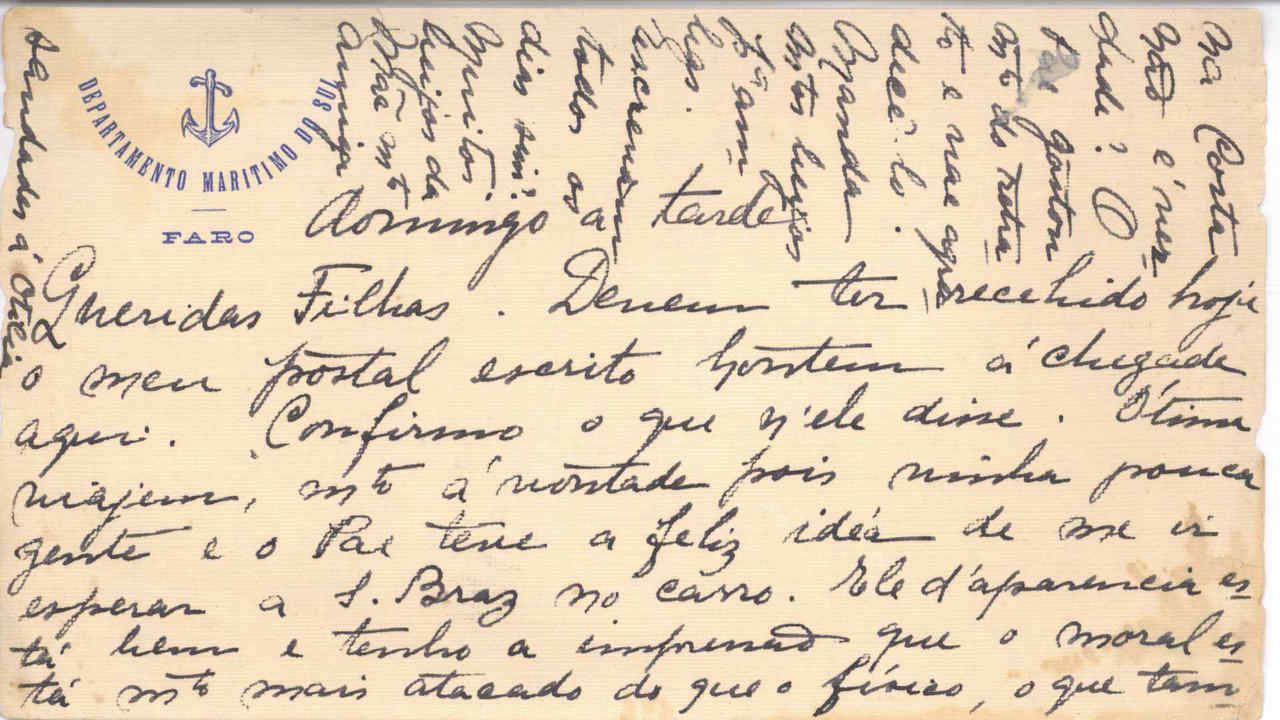 DEPARTAMENTO MARITIMO DO SUL
FARO
Domingo á tarde
Queridas Filhas. Devem ter recebido hoje
o meu postal escrito hontem á chegada
aqui. Confirmo o que n'ele disse. Ótima
viajem, mto á vontade pois vinha pouca
gente e o Pae teve a feliz idéa de me ir
esperar a S. Braz no carro. Ele d'aparencia es-
tá bem e tenho a impressão que o moral es-
tá mto mais atacado do que o físico, o que tam
na Costa
não é ver-
dade? O
Pae gostou
mto do retra-
to e vae agra-
decê-lo.
Manda
mtos beijos
pa am-
bas.
escrevem
todos os
dias sim?
Muitos
beijos da
Mãe mto
amiga
saudades á